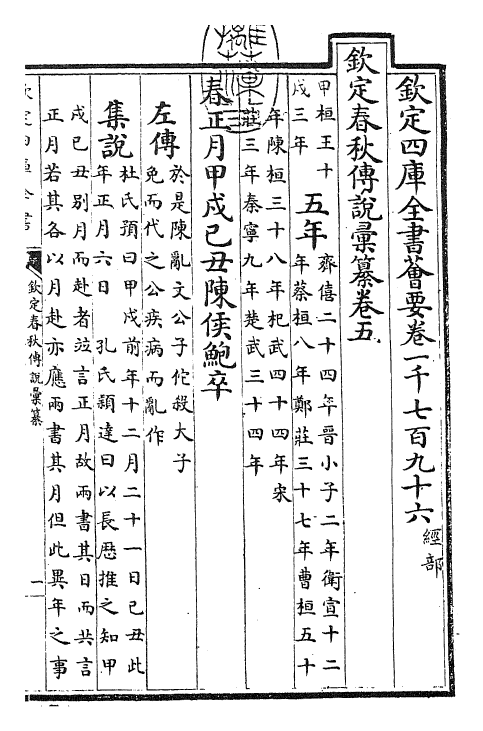 欽定四庫全書薈要卷一千七百九十六 經部
欽定春秋傳說彙纂卷五
甲戌 桓王十三年 五年 齊僖二十四年晉小子二年衛宣十二
年蔡桓八年鄭莊三十七年曹桓五十
年陳桓三十八年杞武四十四年宋
莊三年秦寧九年楚武三十四年
春正月甲戌己丑陳侯鮑卒
左傳 於是陳亂文公子佗殺大子
免而代之公疾病而亂作
集說 杜氏預曰甲戌前年十二月二十一日己丑此
年正月六日 孔氏穎達曰以長歷推之知甲
戌己丑別月而赴者竝言正月故兩書其日而共言
正月若其各以月赴亦應兩書其月但此異年之事
欽定春秋傳說彙纂
一